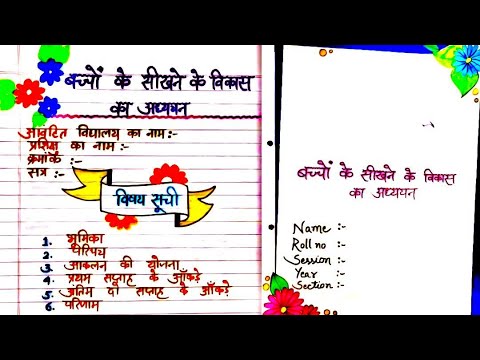 बच्चों के सीखने के विकास
का अध्ययन
आबंटित विद्यालय का नाम:-
प्रशिक्षु का नाम:-
क्रमांक :-
सत्र :-
विषय सूची
1. भूमिका
2. परिचय
3. आकलन की योजना
4. प्रथम सप्ताह के आँकड़े
5. अंतिम दो सप्ताह के आँकड़े
6. परिणाम
बच्चों के सीखने के विकास
का अध्ययन
Name :-
Roll no :-
Session :-
Year :-
Section :-